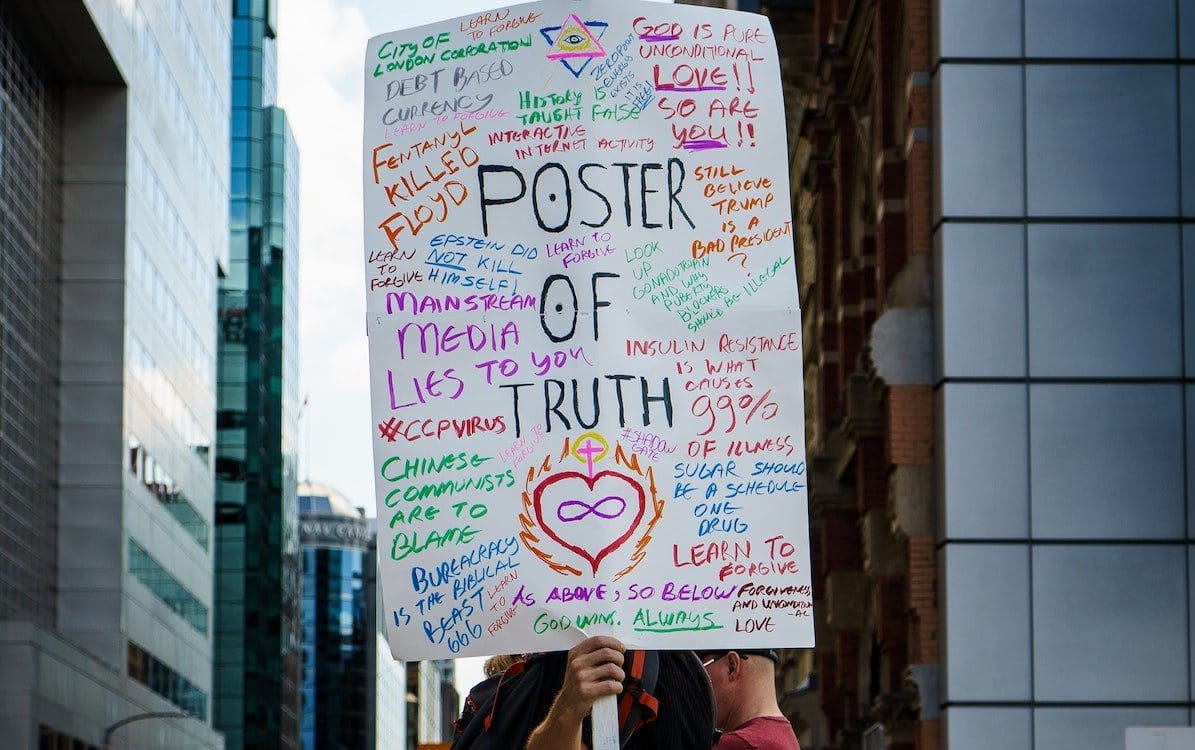 CITY OF
LONDON CORPORATION
LEARN
TO FORGIVE
DEBT BASED
CURRENCY
LEARN TO FORGIVE
HISTORY IS
TAUGHT FALSE
ZEROPOINT
ENERGY
EXISTS
IT IS
FREE!
GOD IS PURE
UNCONDITIONAL
LOVE!!
SO ARE
YOU!!
INTERACTIVE
INTERNET ACTIVITY
FENTANYL
KILLED
FLOYD
POSTER
OF
TRUTH
STILL
BELIEVE
TRUMP
IS A
BAD PRESIDENT
?
LEARN
TO
FORGIVE
EPSTEIN DID
NOT KILL
HIMSELF!
LEARN TO
FORGIVE
LOOK
UP
GONADOTROPIN
AND WHY
PUBERTY
BLOCKERS
SHOULD BE ILLEGAL
MAINSTREAM
MEDIA
LIES TO YOU
INSULIN RESISTANCE
IS WHAT
CAUSES
99%
OF ILLNESS
#CCPVIRUS
LEARN TO
FORGIVE
#SHADOW
GATE
CHINESE
COMMUNISTS
ARE TO
BLAME
SUGAR SHOULD
BE A SCHEDULE
ONE
DRUG
LEARN TO
FORGIVE
BUREACRACY
IS THE BIBLICAL
BEAST
666
LEARN
TO
FORGIVE
AS ABOVE, SO BELOW
GOD WINS. ALWAYS
FORGIVENESS
AND UNCONDITION
-AL
LOVE